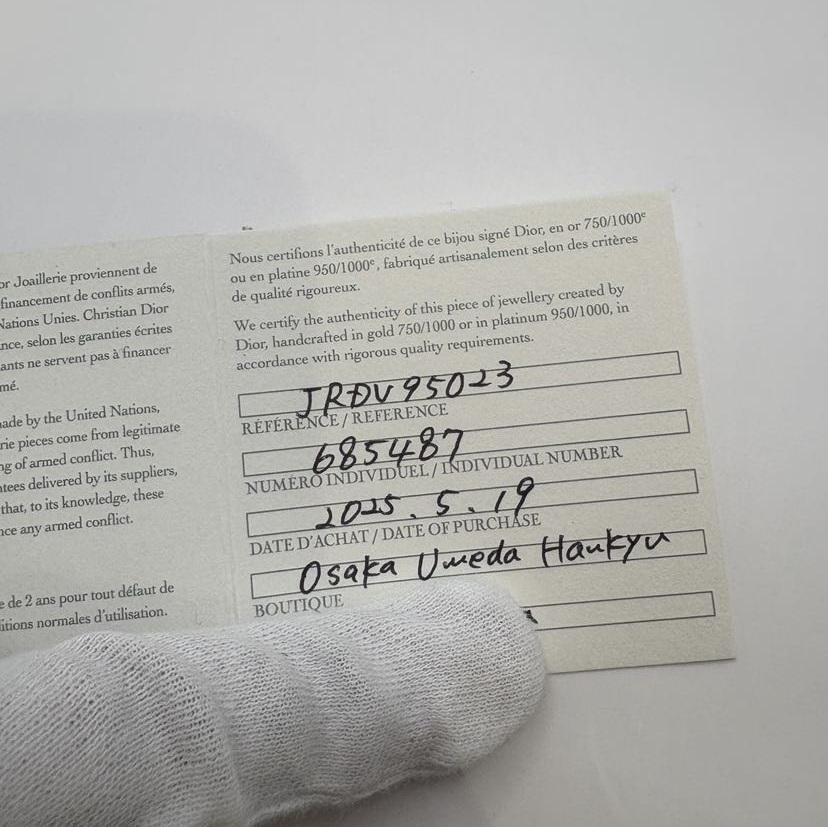 or Joaillerie proviennent de
financement de conflits armés,
Nations Unies. Christian Dior
nce, selon les garanties écrites
ants ne servent pas à financer
mé.
nade by the United Nations,
rie pieces come from legitimate
ng of armed conflict. Thus,
ntees delivered by its suppliers,
that, to its knowledge, these
nce any armed conflict.
e de 2 ans pour tout défaut de
itions normales d'utilisation.
Nous certifions l'authenticité de ce bijou signé Dior, en or 750/1000e
ou en platine 950/1000e, fabriqué artisanalement selon des critères
de qualité rigoureux.
We certify the authenticity of this piece of jewellery created by
Dior, handcrafted in gold 750/1000 or in platinum 950/1000, in
accordance with rigorous quality requirements.
JRDV95023
RÉFÉRENCE / REFERENCE
685487
NUMÉRO INDIVIDUEL / INDIVIDUAL NUMBER
2025.5.19
DATE D'ACHAT / DATE OF PURCHASE
Osaka Umeda Hankyu
BOUTIQUE